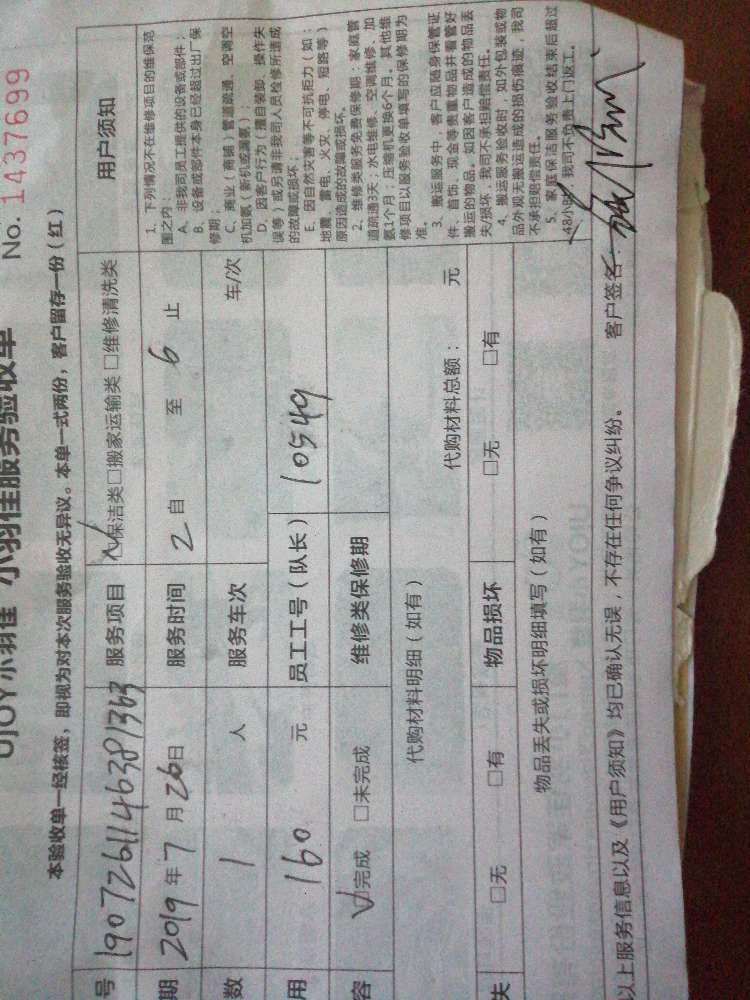 UJOY小羽佳 小羽佳服务验收单
No. 1437699
本验收单一经核签，即视为对本次服务验收无异议。本单一式两份，客户留存一份（红）
号 1907261146381363 服务项目 ☑保洁类□搬家运输类□维修清洗类
期 2019年7月26日 服务时间 2自 至 6 止
数 1 人 服务车次 车/次
用 160 元 员工工号（队长） 10549
容 ☑完成 □未完成 维修类保修期
代购材料明细（如有） 代购材料总额： 元
失 □无 □有 物品损坏 □无 □有
物品丢失或损坏明细填写（如有）
用户须知
1、下列情况不在维修项目的维保范
围之内：
A、非我司员工提供的设备或部件；
B、设备或部件本身已经超过出厂保
修期；
C、商业（商铺）管道疏通、空调空
机加氨（新机或漏氨）；
D、因客户行为（擅自装卸、操作失
误等）或另请非我司人员检修所造成
的故障或损坏；
E、因自然灾害等不可抗拒力（如：
地震、雷电、火灾、停电、短路等）
原因造成的故障或损坏。
2、维修类服务免费保修期：家庭管
道疏通3天；水电维修、空调维修、加
氨1个月；压缩机更换6个月，其他维
修项目以服务验收单填写的保修期为
准。
3、搬运服务中，客户应随身保管证
件、首饰、现金等贵重物品并看管好
搬运的物品。如因客户造成的物品丢
失/损坏，我司不承担赔偿责任。
4、搬运服务验收时，如外包装或物
品外观无搬运造成的损伤痕迹，我司
不承担赔偿责任。
5、家庭保洁服务验收结束后超过
48小时，我司不负责上门返工。
以上服务信息以及《用户须知》均已确认无误，不存在任何争议纠纷。 客户签名：